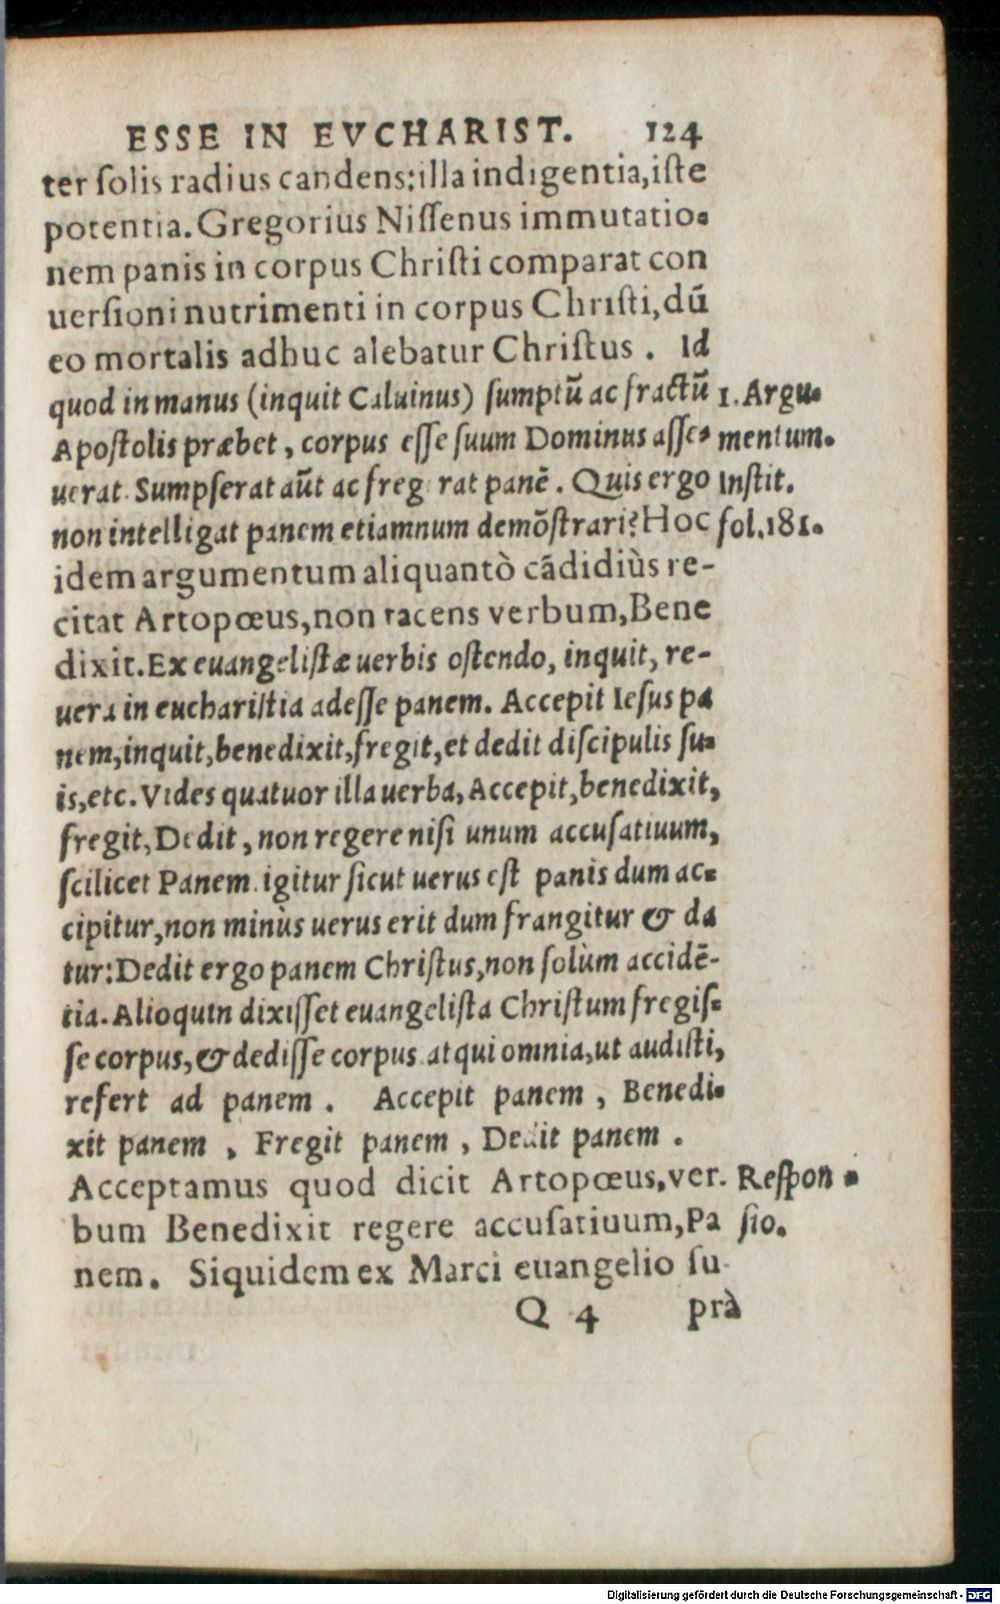 ESSE IN EVCHARIST. 124
ter ſolis radius candens:illa indigentia,iſte
potentia. Gregorius Niſſenus immutatio-
nem panis in corpus Chriſti comparat con
uerſioni nutrimenti in corpus Chriſti, dū
eo mortalis adhuc alebatur Chriſtus . Id
quod in manus (inquit Caluinus) ſumptū ac fractū 1. Argu-
Apoſtolis præbet, corpus eſſe ſuum Dominus aſſe- mentum.
uerat. Sumpſerat aūt ac fregerat panē. Quis ergo Inſtit.
non intelligat panem etiamnum demōſtrari? Hoc fol.181.
idem argumentum aliquantò cādidiùs re-
citat Artopœus, non tacens verbum, Bene
dixit. Ex euangeliſtæ uerbis oſtendo, inquit, re-
uera in euchariſtia adeſſe panem. Accepit Ieſus pa
nem, inquit, benedixit, fregit, et dedit diſcipulis ſu-
is, etc. Vides quatuor illa uerba, Accepit, benedixit,
fregit, Dedit, non regere niſi unum accuſatiuum,
ſcilicet Panem. igitur ſicut uerus eſt panis dum ac-
cipitur, non minùs uerus erit dum frangitur & da
tur: Dedit ergo panem Chriſtus, non ſolùm accidē-
tia. Alioquin dixiſſet euangeliſta Chriſtum fregiſ-
ſe corpus, & dediſſe corpus. atqui omnia, ut audiſti,
refert ad panem . Accepit panem , Benedi-
xit panem , Fregit panem , Dedit panem .
Acceptamus quod dicit Artopœus, ver. Reſpon-
bum Benedixit regere accuſatiuum, Pa ſio.
nem. Siquidem ex Marci euangelio ſu-
Q 4 prà
Digitalisierung gefördert durch die Deutsche Forschungsgemeinschaft - DFG